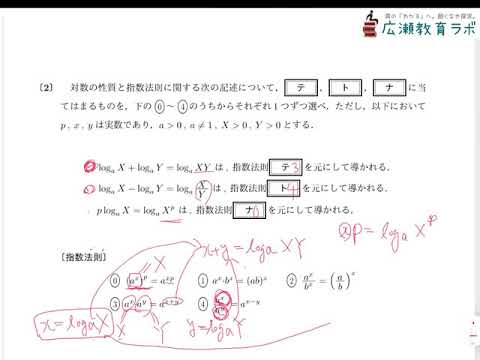 真の「わかる」へ。飽くなき探究。
広瀬教育ラボ
〔2〕 対数の性質と指数法則に関する次の記述について, テ , ト , ナ に当
てはまるものを, 下の ⓪ ~ ④ のうちからそれぞれ1つずつ選べ. ただし, 以下において
p , x , y は実数であり, a > 0 , a ≠ 1 , X > 0 , Y > 0 とする.
logₐ X + logₐ Y = logₐ XY は , 指数法則 テ 3 を元にして導かれる.
logₐ X − logₐ Y = logₐ X/Y は , 指数法則 ト 4 を元にして導かれる.
p logₐ X = logₐ Xᵖ は , 指数法則 ナ 0 を元にして導かれる.
xp = logₐ Xᵖ
x+y = logₐ XY
〔指数法則〕
X
⓪ (aˣ)ᵖ = aˣᵖ ① aˣ·bˣ = (ab)ˣ ② aˣ/bˣ = (a/b)ˣ
③ aˣaʸ = aˣ⁺ʸ ④ aˣ/aʸ = aˣ⁻ʸ
x = logₐX X Y y = logₐY